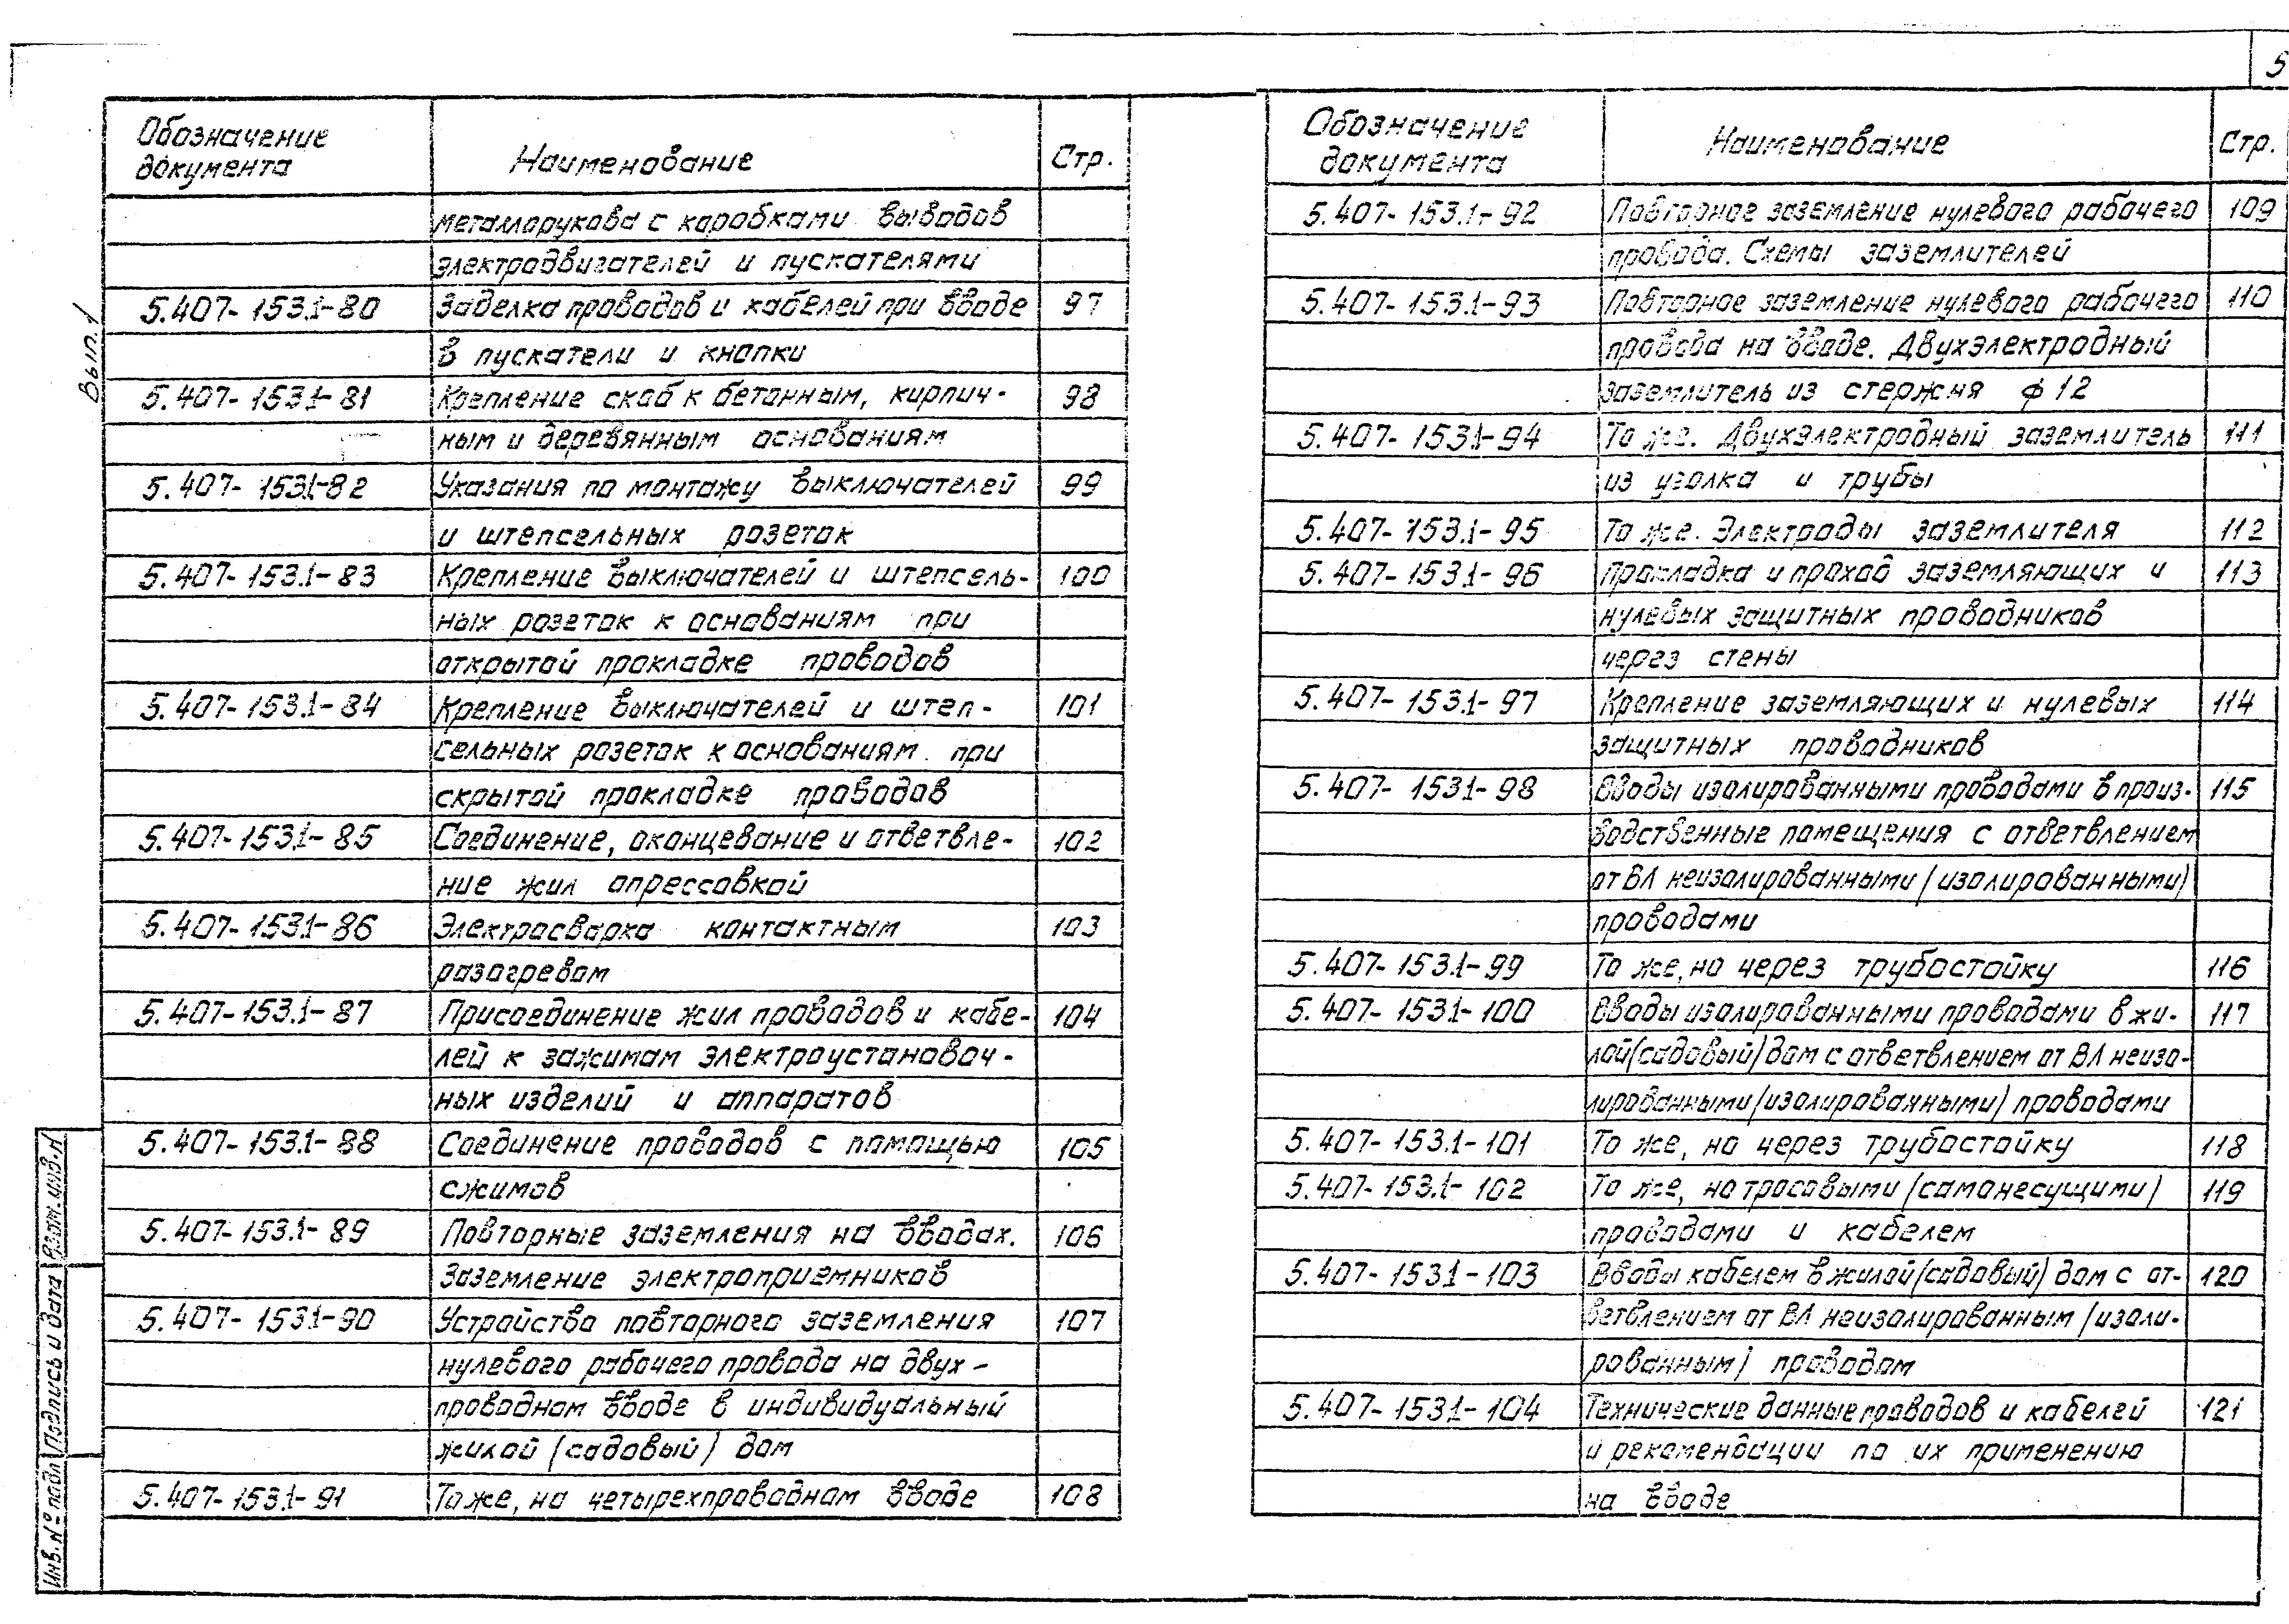 5
Вып. 1
Обозначение документа Наименование Стр.
металлорукова с коробками выводов
электродвигателей и пускателями
5.407-153.1-80 Заделка проводов и кабелей при вводе 97
в пускатели и кнопки
5.407-153.1-81 Крепление скоб к бетонным, кирпич- 98
ным и деревянным основаниям
5.407-153.1-82 Указания по монтажу выключателей 99
и штепсельных розеток
5.407-153.1-83 Крепление выключателей и штепсель- 100
ных розеток к основаниям при
открытой прокладке проводов
5.407-153.1-84 Крепление выключателей и штеп- 101
сельных розеток к основаниям при
скрытой прокладке проводов
5.407-153.1-85 Соединение, оконцевание и ответвле- 102
ние жил опрессовкой
5.407-153.1-86 Электросварка контактным 103
разогревом
5.407-153.1-87 Присоединение жил проводов и кабе- 104
лей к зажимам электроустановоч-
ных изделий и аппаратов
5.407-153.1-88 Соединение проводов с помощью 105
сжимов
5.407-153.1-89 Повторные заземления на вводах. 106
Заземление электроприемников
5.407-153.1-90 Устройство повторного заземления 107
нулевого рабочего провода на двух-
проводном вводе в индивидуальный
жилой (садовый) дом
5.407-153.1-91 То же, на четырехпроводном вводе 108
Обозначение документа Наименование Стр.
5.407-153.1-92 Повторное заземление нулевого рабочего 109
провода. Схемы заземлителей
5.407-153.1-93 Повторное заземление нулевого рабочего 110
провода на вводе. Двухэлектродный
заземлитель из стержня ф 12
5.407-153.1-94 То же. Двухэлектродный заземлитель 111
из уголка и трубы
5.407-153.1-95 То же. Электроды заземлителя 112
5.407-153.1-96 Прокладка и проход заземляющих и 113
нулевых защитных проводников
через стены
5.407-153.1-97 Крепление заземляющих и нулевых 114
защитных проводников
5.407-153.1-98 Вводы изолированными проводами в произ- 115
водственные помещения с ответвлением
от ВЛ неизолированными (изолированными)
проводами
5.407-153.1-99 То же, но через трубостойку 116
5.407-153.1-100 Вводы изолированными проводами в жи- 117
лой (садовый) дом с ответвлением от ВЛ неизо-
лированными (изолированными) проводами
5.407-153.1-101 То же, но через трубостойку 118
5.407-153.1-102 То же, но тросовыми (самонесущими) 119
проводами и кабелем
5.407-153.1-103 Вводы кабелем в жилой (садовый) дом с от- 120
ветвлением от ВЛ неизолированным (изоли-
рованным) проводом
5.407-153.1-104 Технические данные проводов и кабелей 121
и рекомендации по их применению
на вводе
Инв. № подл Подпись и дата Взам. инв. №